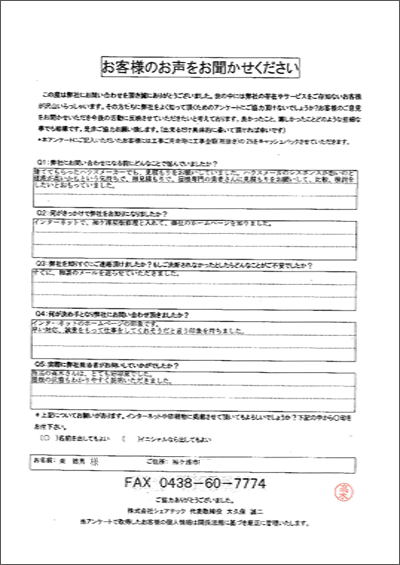 お客様のお声をお聞かせください
この度は弊社にお問い合わせを頂き誠にありがとうございました。世の中には弊社の存在やサービスをご存知ないお客様
が沢山いらっしゃいます。その方たちに弊社をよく知って頂くためのアンケートにご協力頂けないでしょうか?お客様のご意見
をお聞かせいただき今後の活動に反映させていただきたいと考えております。良かったこと、嬉しかったことどのような些細な
事でも結構です。是非ご協力お願い致します。(出来るだけ具体的に書いて頂ければ幸いです)
★本アンケートにご記入いただいたお客様には工事ご完走時に工事金額(税抜き)の2%をキャッシュバックさせていただきます。
Q1:弊社にお問い合わせになる前にどんなことで悩んでいましたか?
建ててもらったハウスメーカーでも、見積もりをお願いしていました。ハウスメーカのレスポンスが悪いのと
したいとおもっていました。
Q2:何がきっかけで弊社をお知りになりましたか?
インターネットで、袖ケ浦 屋根修理と入れて、御社のホームページを知りました。
Q3:弊社を知りすぐにご連絡頂けましたか?もしご決断されなかったとしたらどんなことがご不安でしたか?
すぐに、相談のメールを送らせていただきました。
Q4:何が決め手となり弊社にお問い合わせ頂きましたか?
インターネットのホームページの印象です。
早い対応、誠意をもって仕事をしてくれそうだと言う印象を持ちました。
Q5:実際に弊社担当者がお伺いしていかがでしたか?
担当の高木さんは、とても好印象でした。
屋根の状態もわかりやすく説明いただきました。
*上記についてお願いがあります。インターネットや印刷物に掲載させて頂いてもよろしいでしょうか?下記の中から〇印を
お付け下さい。
(○)名前を出してもよい ( )イニシャルなら出してもよい
お名前: 様 ご住所: 袖ケ浦市
FAX 0438-60-7774
ご協力ありがとうございました。
株式会社シェアテック 代表取締役 大久保 誠二
当アンケートで取得したお客様の個人情報は関係法規に基づき厳正に管理いたします。
高木